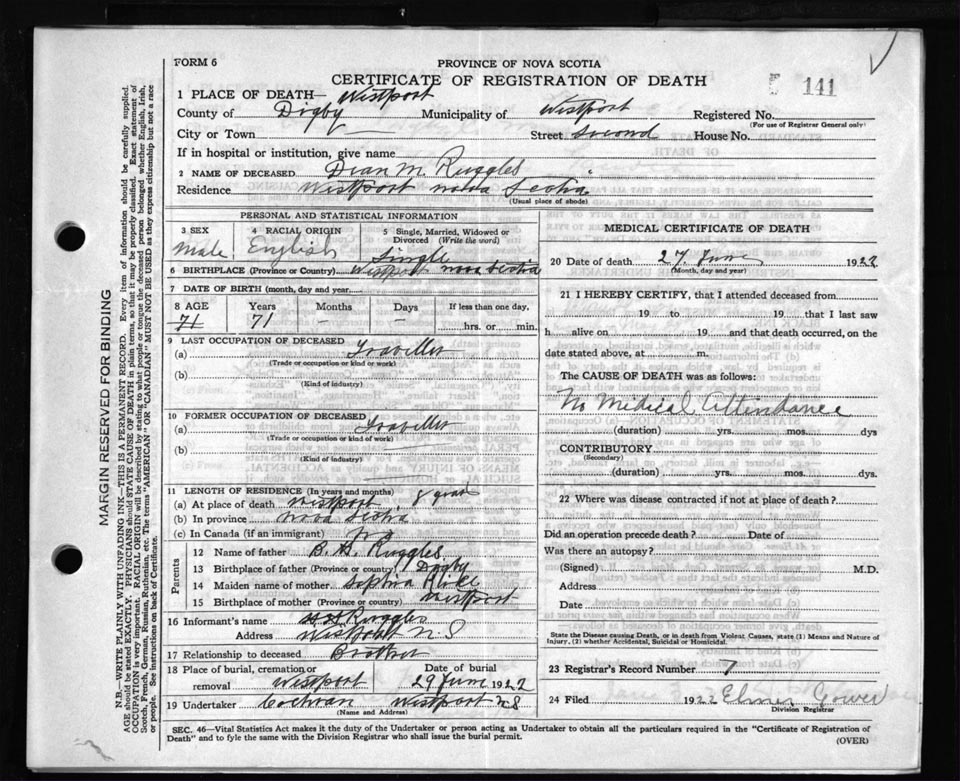 FORM 6
PROVINCE OF NOVA SCOTIA
CERTIFICATE OF REGISTRATION OF DEATH
141
1 PLACE OF DEATH— Westport
County of Digby Municipality of Westport Registered No.
(For use of Registrar General only)
City or Town Street Second House No.
If in hospital or institution, give name
2 NAME OF DECEASED Dean M. Ruggles
Residence Westport Nova Scotia
(Usual place of abode)
PERSONAL AND STATISTICAL INFORMATION
3 SEX Male
4 RACIAL ORIGIN English
5 Single, Married, Widowed or Divorced (Write the word) Single
6 BIRTHPLACE (Province or Country) Westport Nova Scotia
7 DATE OF BIRTH (month, day and year)
8 AGE Years Months Days If less than one day,
71 71 – – hrs. or min.
9 LAST OCCUPATION OF DECEASED
(a) Traveller
(Trade or occupation or kind of work)
(b)
(Kind of industry)
10 FORMER OCCUPATION OF DECEASED
(a) Traveller
(Trade or occupation or kind of work)
(b)
(Kind of industry)
11 LENGTH OF RESIDENCE (In years and months)
(a) At place of death Westport 8 years
(b) In province Nova Scotia
(c) In Canada (if an immigrant)
Parents
12 Name of father B. H. Ruggles
13 Birthplace of father (Province or country) Digby
14 Maiden name of mother Sophia
15 Birthplace of mother (Province or country) Westport
16 Informant's name Ruggles
Address Westport N S
17 Relationship to deceased Brother
18 Place of burial, cremation or removal Westport
Date of burial 29 June 1927
19 Undertaker Cochran Westport N S
(Name and Address)
MEDICAL CERTIFICATE OF DEATH
20 Date of death 27. June 1927
(Month, day and year)
21 I HEREBY CERTIFY, that I attended deceased from
19 to 19 that I last saw
h alive on 19 and that death occurred, on the
date stated above, at m.
The CAUSE OF DEATH was as follows:
No Medical Attendance
(duration) yrs. mos. dys
CONTRIBUTORY
(Secondary)
(duration) yrs. mos. dys.
22 Where was disease contracted if not at place of death?
Did an operation precede death? Date of
Was there an autopsy?
(Signed) M.D.
Address
Date
State the Disease causing Death, or in death from Violent Causes, state (1) Means and Nature of
Injury, (2) whether Accidental, Suicidal or Homicidal.
23 Registrar's Record Number 7
24 Filed 192 Elmer Gower
Division Registrar
SEC. 46—Vital Statistics Act makes it the duty of the Undertaker or person acting as Undertaker to obtain all the particulars required in the "Certificate of Registration of
Death" and to fyle the same with the Division Registrar who shall issue the burial permit.
(OVER)
MARGIN RESERVED FOR BINDING
N.B.—WRITE PLAINLY WITH UNFADING INK—THIS IS A PERMANENT RECORD. Every item of information should be carefully supplied.
AGE should be stated EXACTLY. PHYSICIANS should STATE CAUSE OF DEATH in plain terms, so that it may be properly classified. Exact statement of
OCCUPATION is very important. RACIAL ORIGIN will be described by stating to what people or tongue the deceased person belonged whether English, Irish,
Scotch, French, German, Russian, Ruthenian, etc. The terms "AMERICAN" or "CANADIAN" MUST NOT BE USED as they express citizenship but not a race
or people. See instructions on back of Certificate.